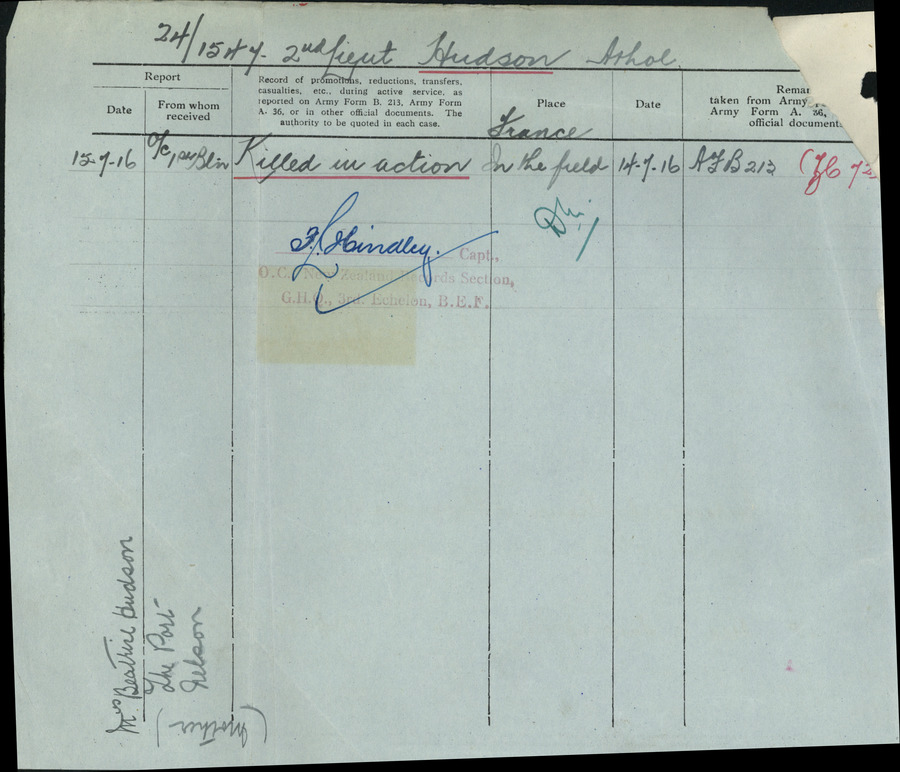 24/1547. 2nd Lieut Hudson Athol
Report
Date
From whom received
Record of promotions, reductions, transfers,
casualties, etc., during active service, as
reported on Army Form B. 213, Army Form
A. 36, or in other official documents. The
authority to be quoted in each case.
Place
Date
Remar
taken from Army
Army Form A. 36,
official document
France
15-7-16 O/C, Bln Killed in action In the field 14-7-16 AFB 213
F. Hindley.
Capt.,
O.C. New Zealand Records Section,
G.H.Q., 3rd. Echelon, B.E.F.
Mrs Beatrice Hudson
The Port
Nelson
(Mother)